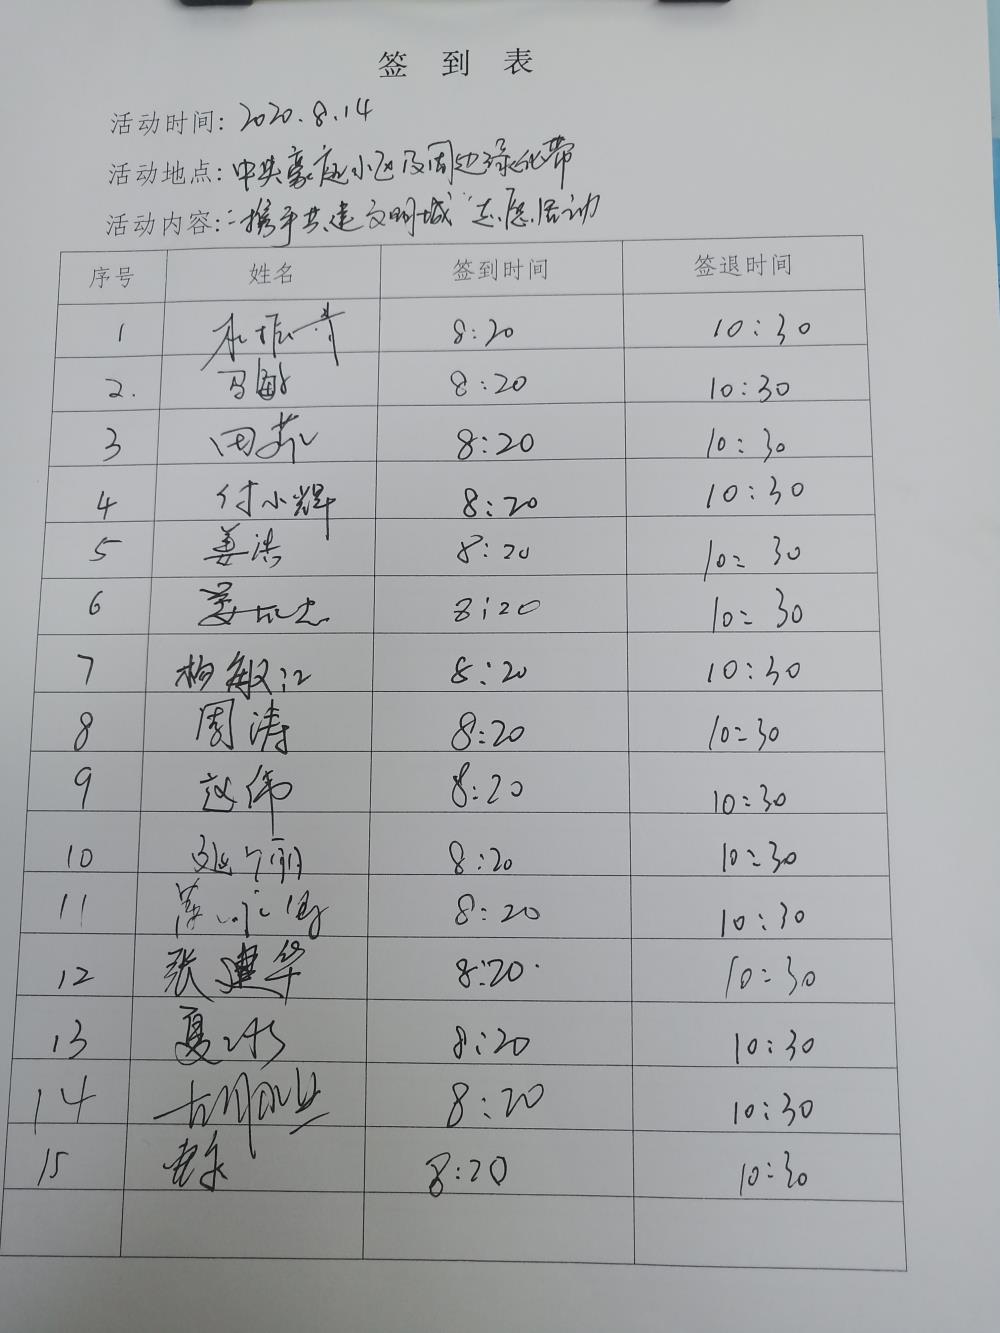 签 到 表
活动时间: 2020.8.14
活动地点: 中央豪庭小区及周边绿化带
活动内容: "携手共建文明城"志愿活动
序号 姓名 签到时间 签退时间
1 8:20 10:30
2. 马敏 8:20 10:30
3 田 8:20 10:30
4 付小辉 8:20 10:30
5 姜浩 8:20 10:30
6 姜 8:20 10:30
7 杨敏江 8:20 10:30
8 周涛 8:20 10:30
9 赵伟 8:20 10:30
10 8:20 10:30
11 8:20 10:30
12 张建华 8:20 10:30
13 夏 8:20 10:30
14 胡 8:20 10:30
15 8:20 10:30